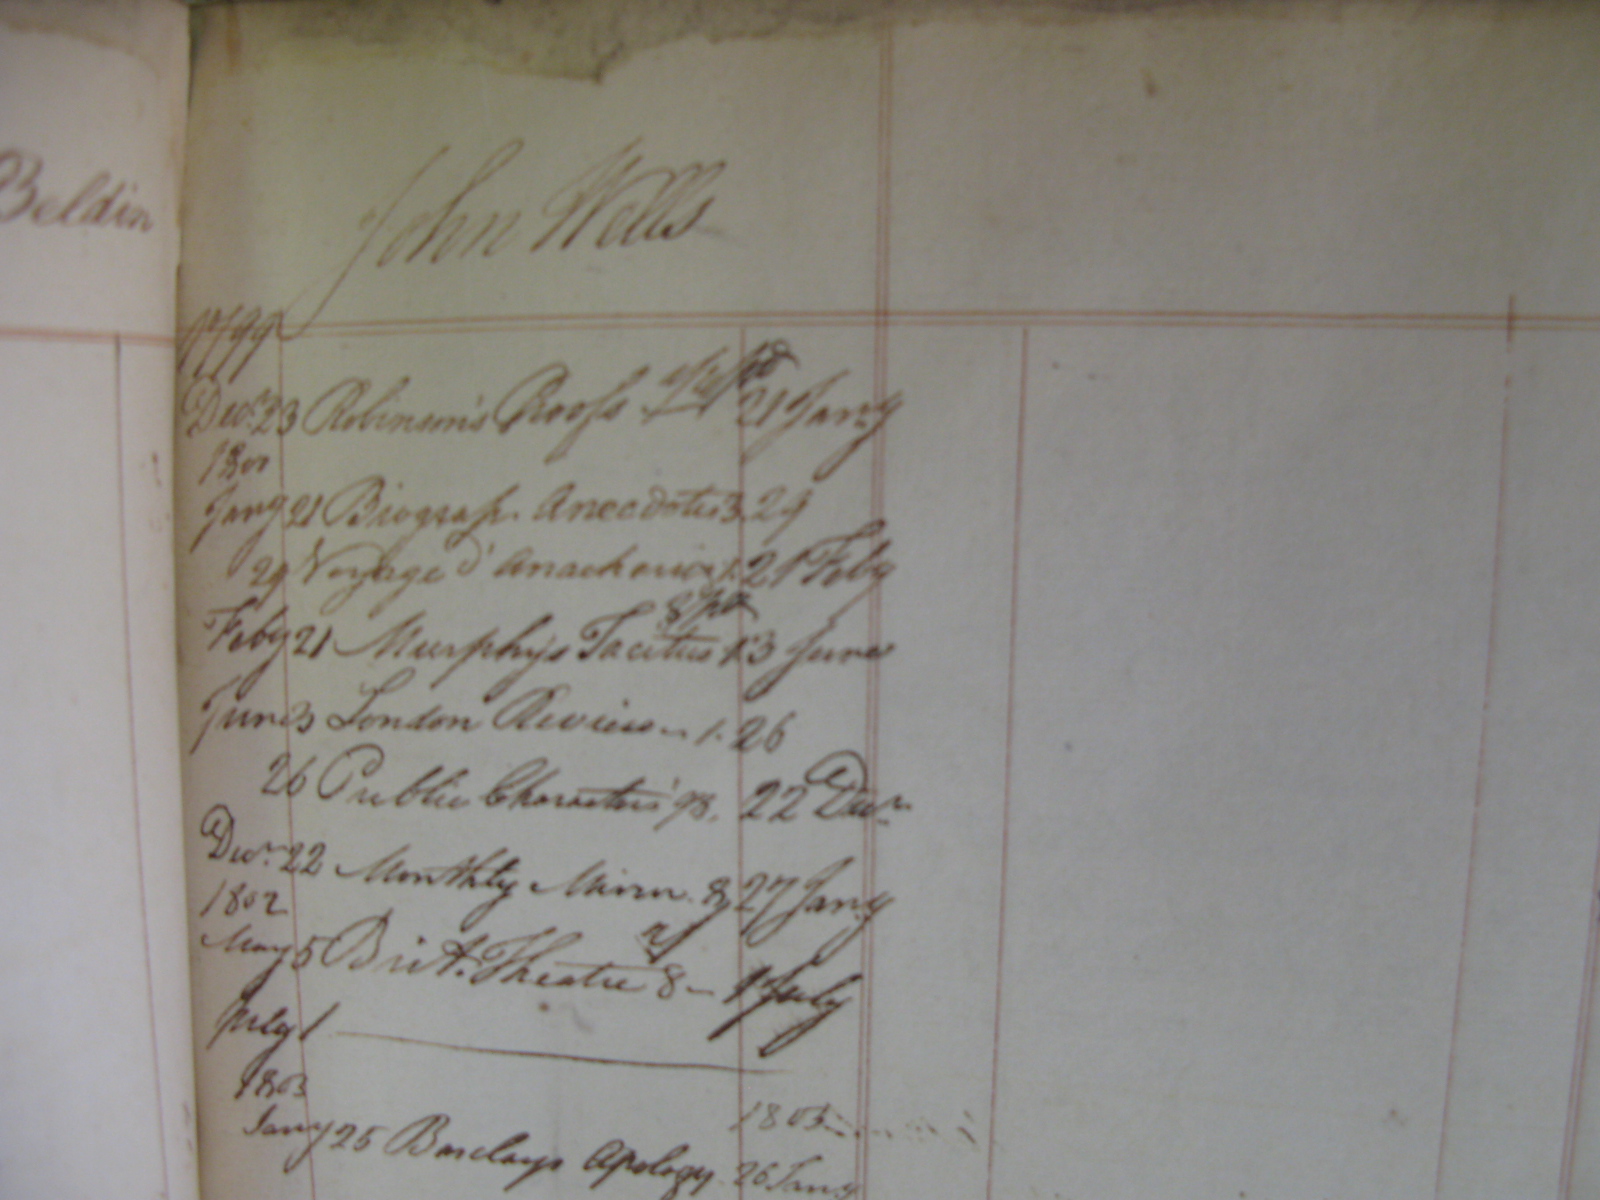 Beldin
John Wells
1799
Decr. 23 Robinson's Proofs 21 Jany
1801
Jany 21 Biograp. Anecdotes 3. 29
29 Voyage d'Anacharsis 1. 21 Feby
Feby 21 Murphys Tacitus 1. 3 June
June 3 London Review 1. 26
26 Public Characters 98. 22 Decr.
Decr. 22 Monthly Mirror. 8 27 Jany
1802
May 5 Brit. Theatre 8 - 1 July
July 1
1803
1803
Jany 25 Barclays Apology. 26 Jany